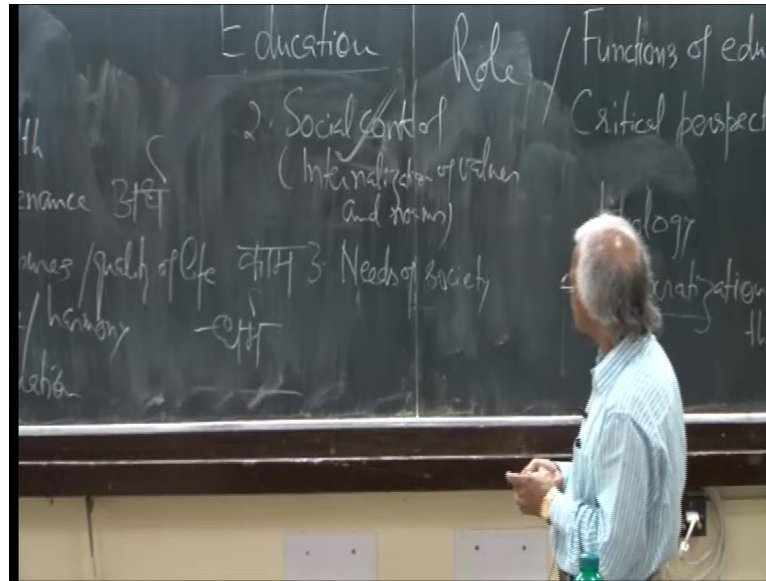 Education
2. Social Control
(Internalization of values
and norms)
3. Needs of society
th
enance अर्थ
/quality of life काम
/harmony धर्म
Role / Functions of edu
Critical perspect
ology
ratization
th